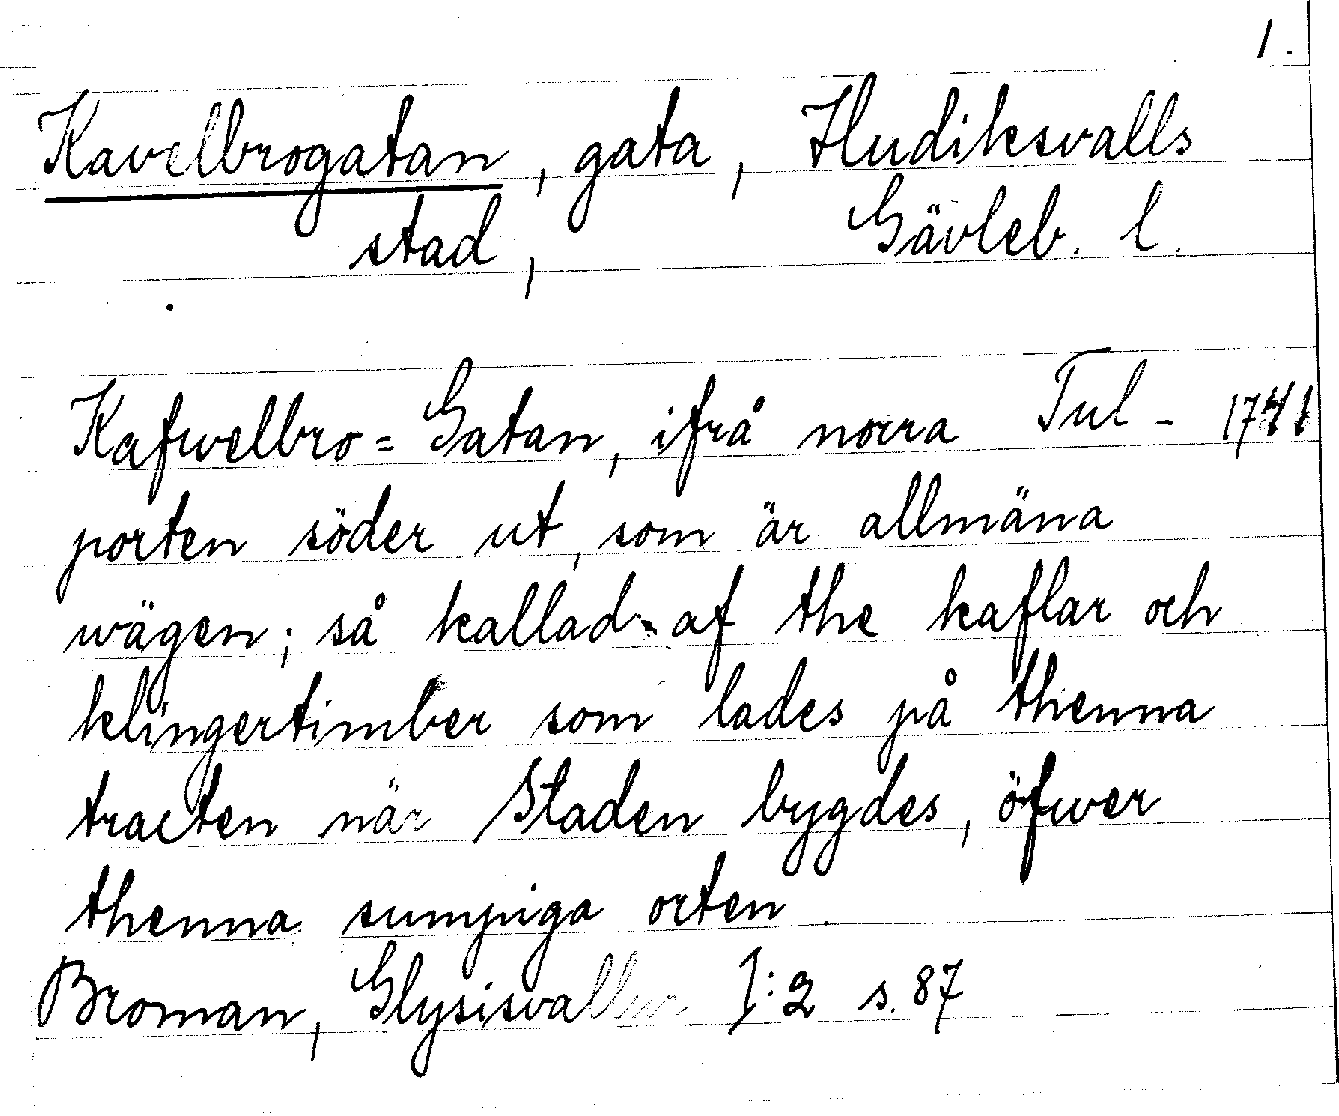 1.
Kavelbrogatan, gata, Hudiksvalls
stad, Gävleb. l.
Kafwelbro=Gatan, ifrå norra Tul- 1741
porten söder ut, som är allmäna
wägen; så kallad af the kaflar och
klingertimber som lades på thenna
tracten när Staden bygdes, öfwer
thenna sumpiga orten.
Broman, Glysisvallur I:2 s. 87